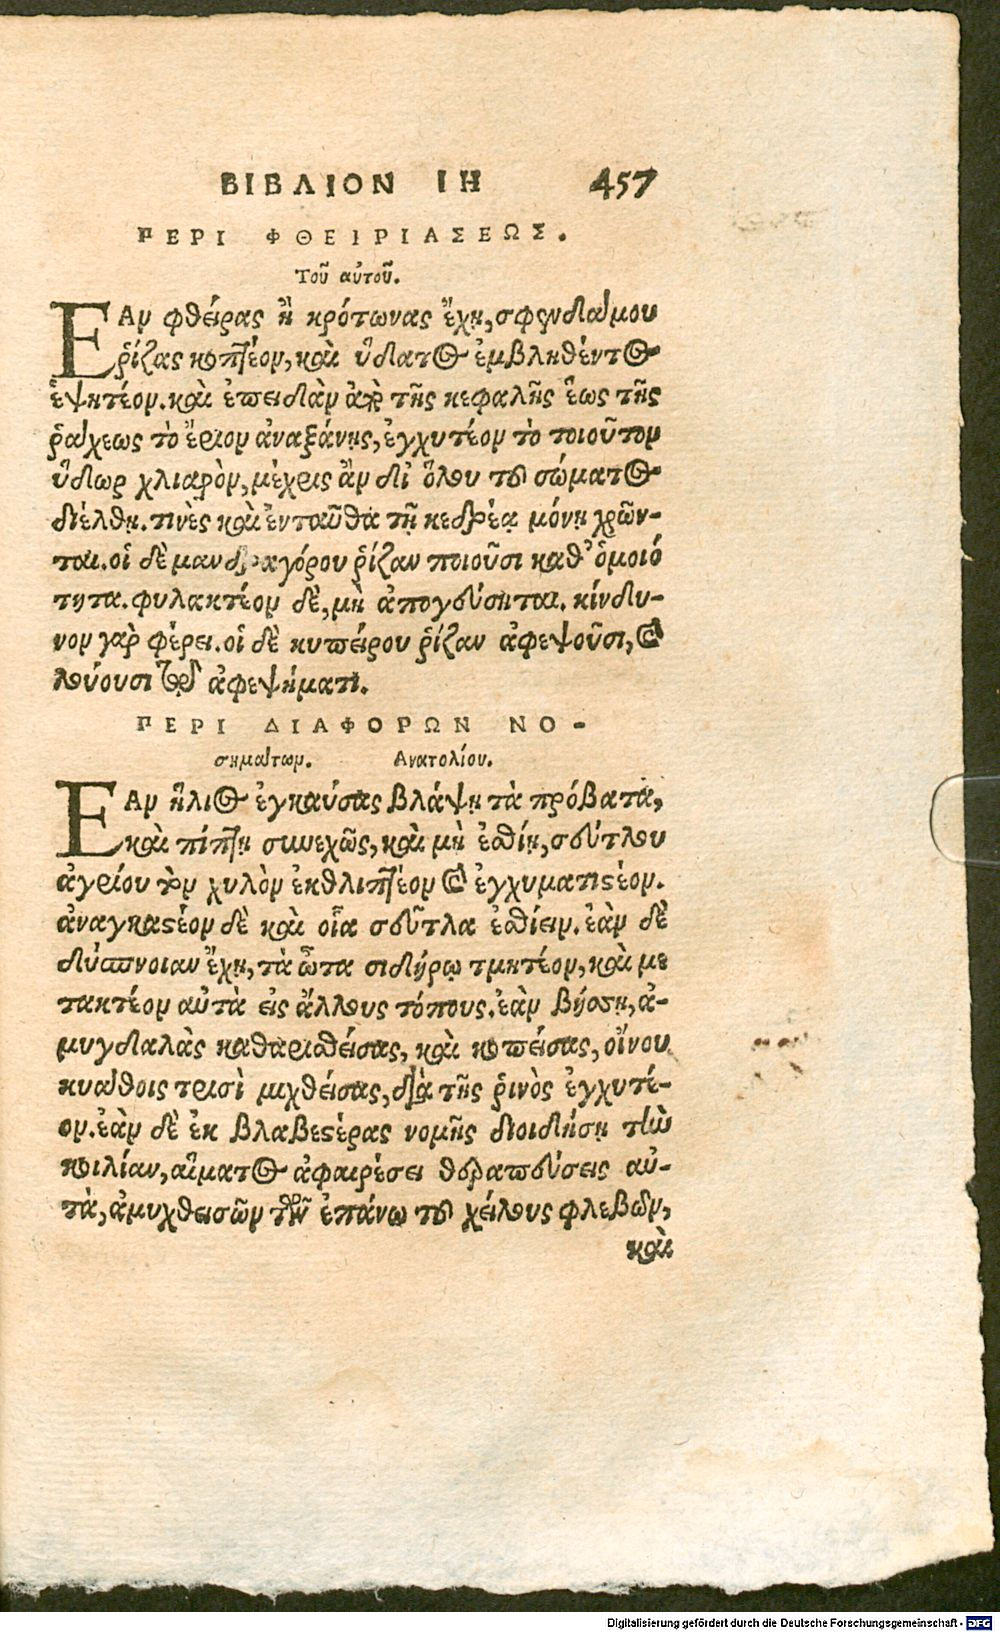 ΒΙΒΛΙΟΝ ΙΗ 457
ΠΕΡΙ ΦΘΕΙΡΙΑΣΕΩΣ.
Τοῦ αὐτοῦ.
ΕΑν φθεῖρας ἢ κρότωνας ἔχῃ, σφενδάμου
ῥίζας κοπτέον, καὶ ὕδατος ἐμβληθέντος
ἑψητέον. καὶ ἐπειδὰν ἀπὸ τῆς κεφαλῆς ἕως τῆς
ῥάχεως τὸ ἔριον ἀναξάνῃς, ἐγχυτέον τὸ τοιοῦτον
ὕδωρ χλιαρὸν, μέχρις ἂν δι’ ὅλου τοῦ σώματος
διέλθῃ. τινὲς καὶ ἐνταῦθα τῇ κεδρέᾳ μόνῃ χρῶν-
ται. οἱ δὲ μανδραγόρου ῥίζαν ποιοῦσι καθ’ ὁμοιό
τητα. φυλακτέον δὲ, μὴ ἀπογεύσηται. κίνδυ-
νον γὰρ φέρει. οἱ δὲ κυπείρου ῥίζαν ἀφεψοῦσι, καὶ
λούουσι τῷ ἀφεψήματι.
ΠΕΡΙ ΔΙΑΦΟΡΩΝ ΝΟ-
σημάτων. Ανατολίου.
ΕΑν ἥλιος ἐγκαύσας βλάψῃ τὰ πρόβατα,
καὶ πίπτῃ συνεχῶς, καὶ μὴ ἐσθίῃ, σεύτλου
ἀγρίου τὸν χυλὸν ἐκθλιπτέον καὶ ἐγχυματιστέον.
ἀναγκαστέον δὲ καὶ οἷα σεῦτλα ἐσθίειν. ἐὰν δὲ
δύσπνοιαν ἔχῃ, τὰ ὦτα σιδήρῳ τμητέον, καὶ με
τακτέον αὐτὰ εἰς ἄλλους τόπους. ἐὰν βήσσῃ, ἀ-
μυγδαλὰς καθαρισθείσας, καὶ κοπείσας, οἴνου
κυάθοις τρισὶ μιχθείσας, διὰ τῆς ῥινὸς ἐγχυτέ-
ον. ἐὰν δὲ ἐκ βλαβεστέρας νομῆς διοιδήσῃ τὴν
κοιλίαν, αἵματος ἀφαιρέσει θεραπεύσεις αὐ-
τὰ, ἀμυχθεισῶν τῶν ἐπάνω τοῦ χείλους φλεβῶν,
καὶ
Digitalisierung gefördert durch die Deutsche Forschungsgemeinschaft - DFG